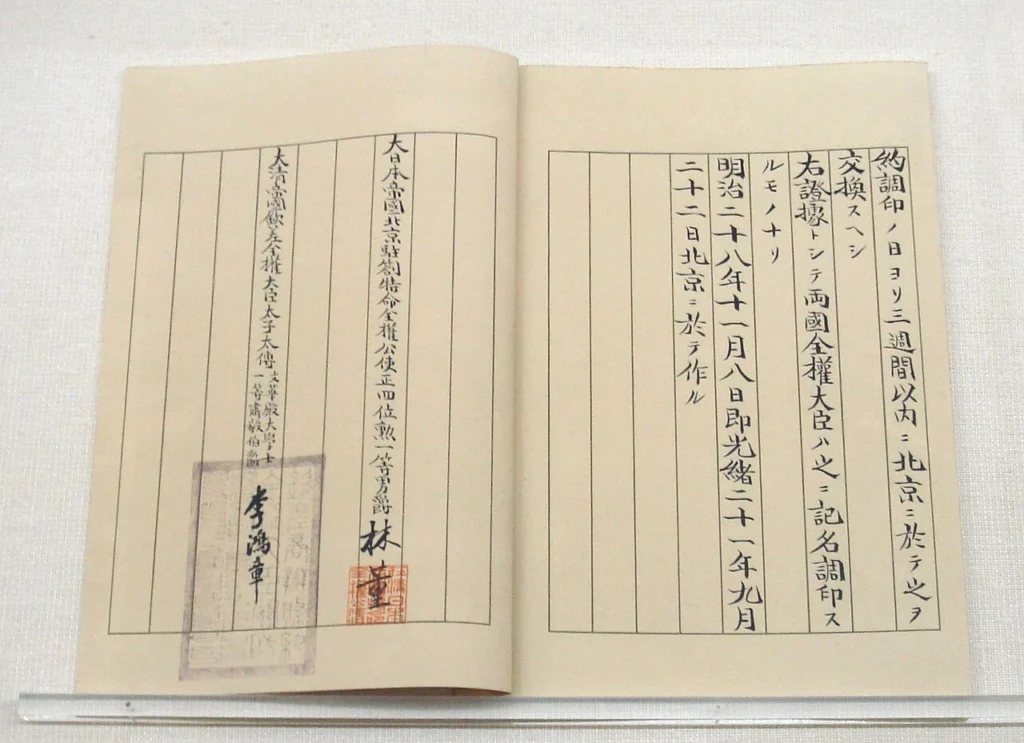 約調印ノ日ヨリ三週間以内ニ北京ニ於テ之ヲ
交換スヘシ
右證據トシテ両國全權大臣ハ之ニ記名調印ス
ルモノナリ
明治二十八年十一月八日即光緒二十一年九月
二十二日北京ニ於テ作ル
大日本帝國北京駐箚特命全權公使正四位勲一等男爵林董
大清帝國欽差全權大臣太子太傅文華殿大學士
一等肅毅伯爵李鴻章